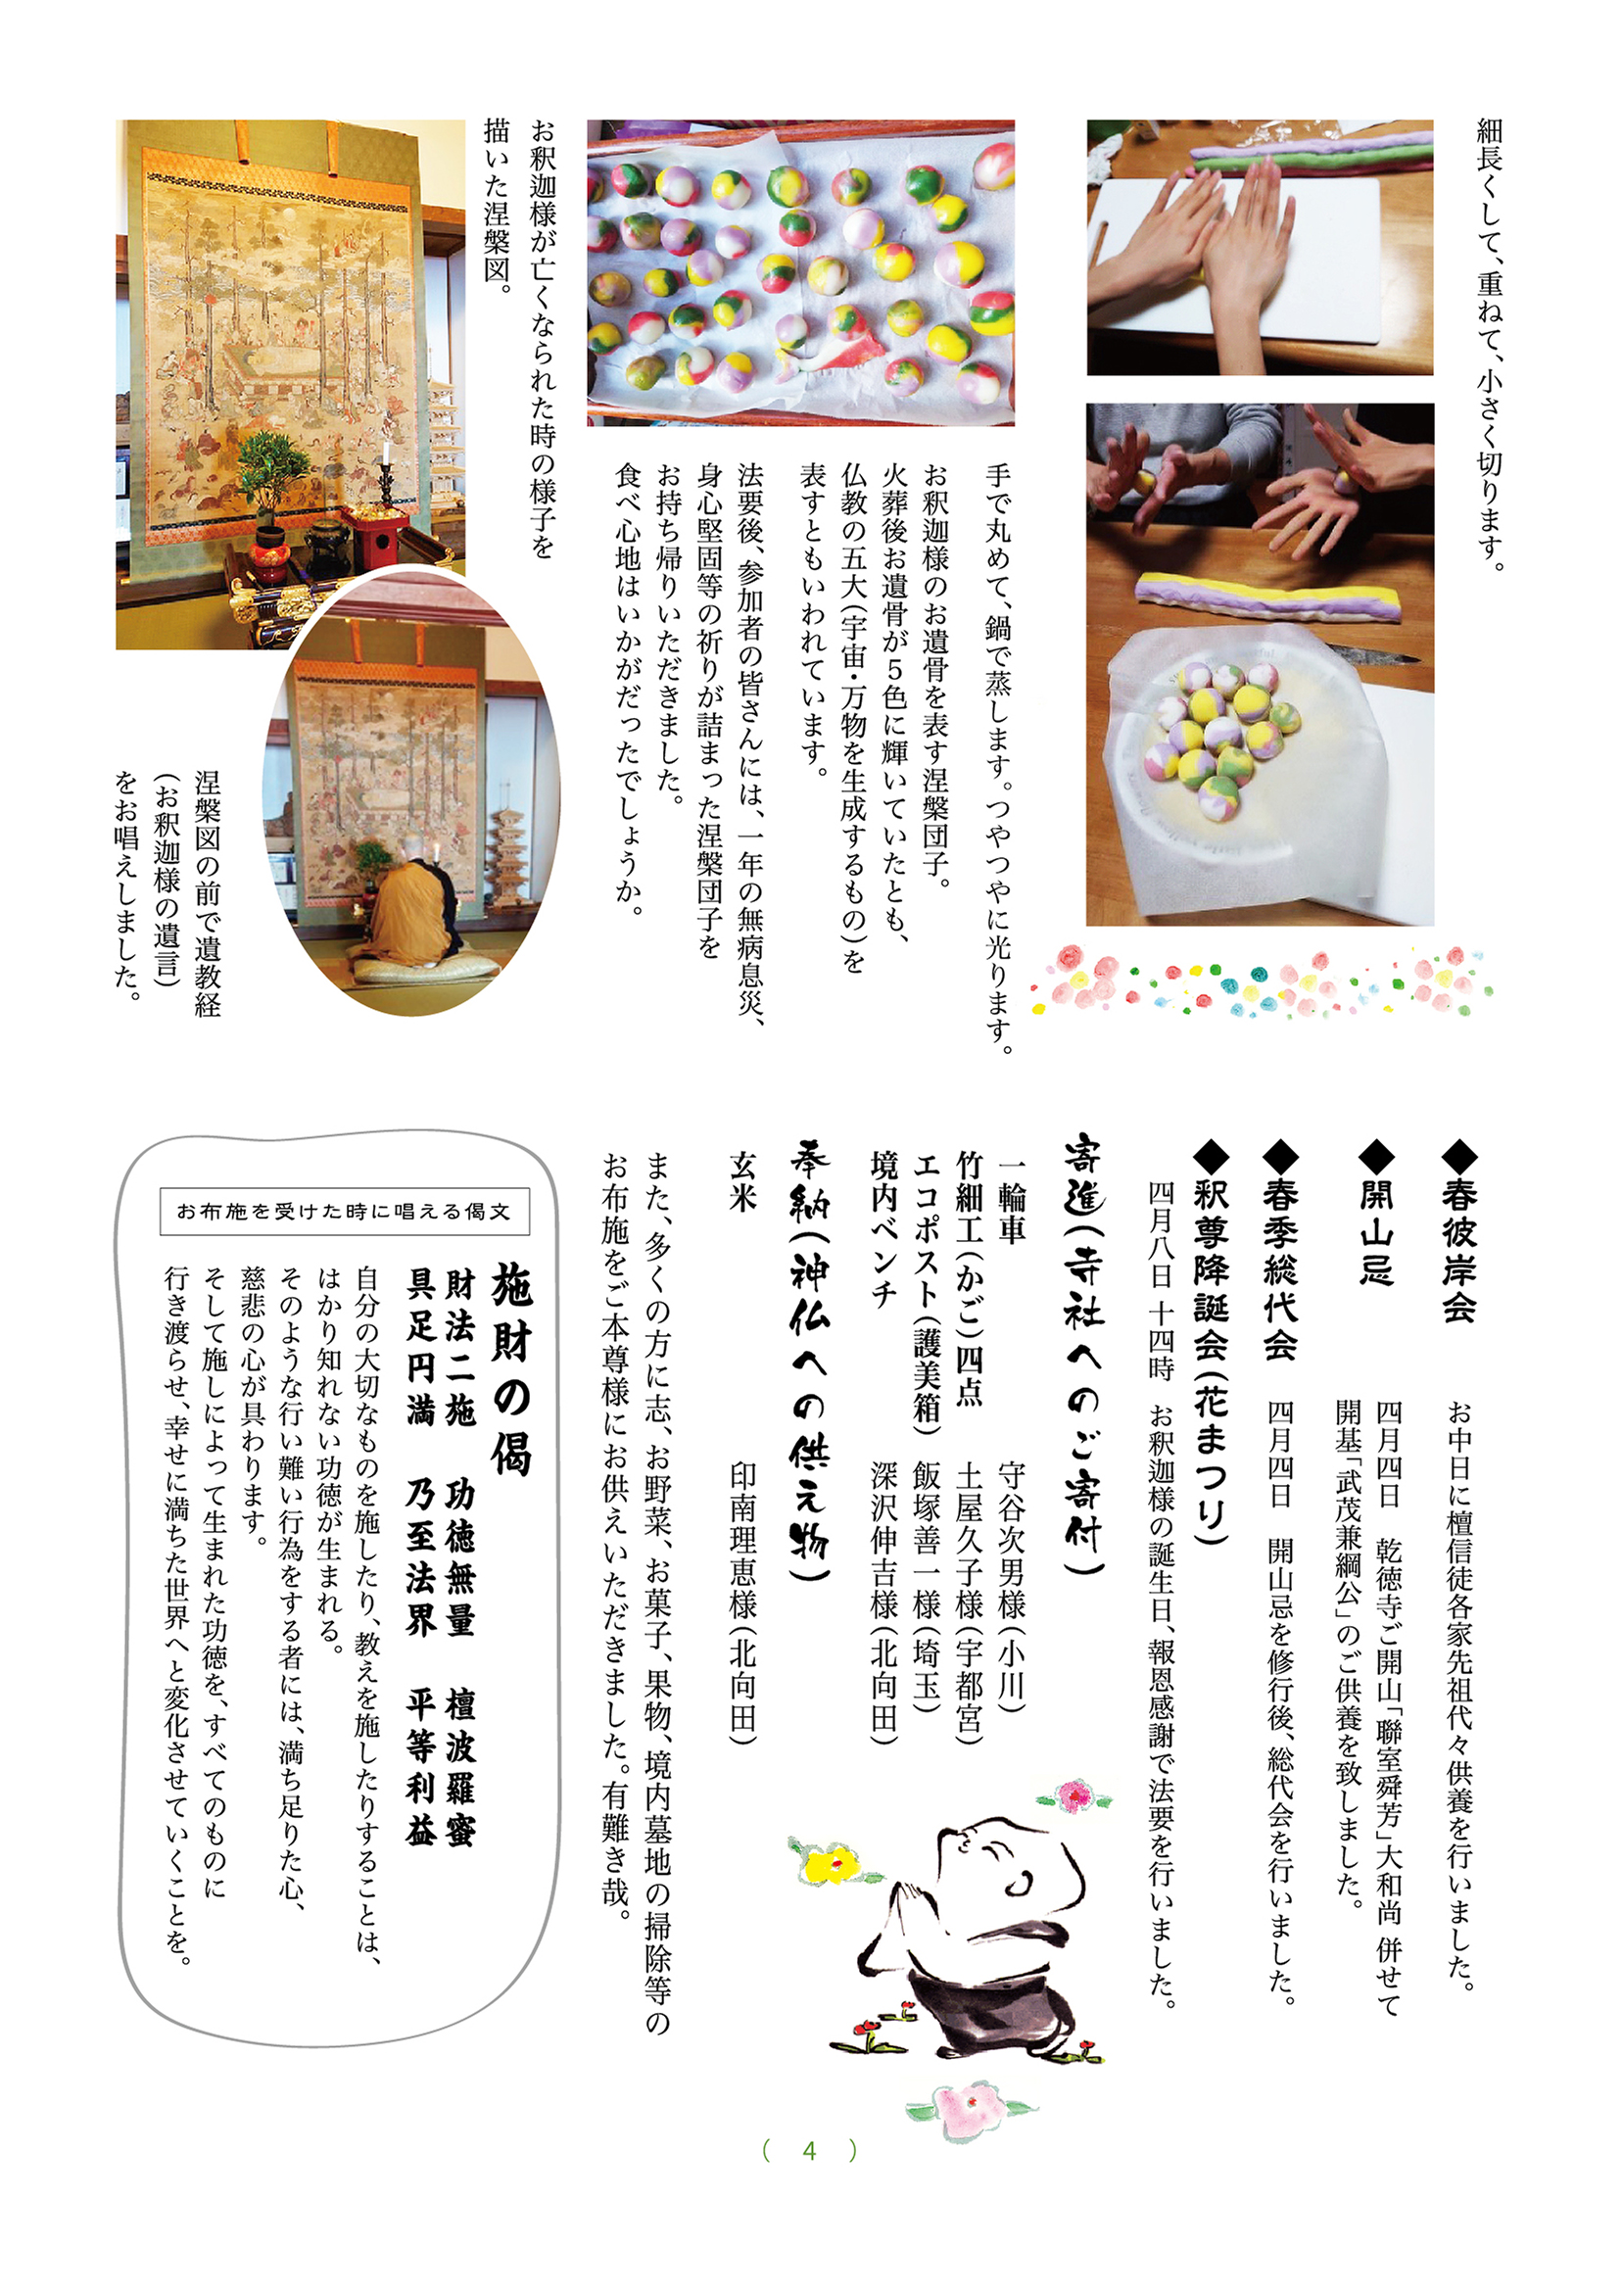 細長くして、重ねて、小さく切ります。
手で丸めて、鍋で蒸します。つやつやに光ります。
お釈迦様のお遺骨を表す涅槃団子。
火葬後お遺骨が５色に輝いていたとも、
仏教の五大（宇宙・万物を生成するもの）を
表すともいわれています。
法要後、参加者の皆さんには、一年の無病息災、
身心堅固等の祈りが詰まった涅槃団子を
お持ち帰りいただきました。
食べ心地はいかがだったでしょうか。
お釈迦様が亡くなられた時の様子を
描いた涅槃図。
涅槃図の前で遺教経
（お釈迦様の遺言）
をお唱えしました。
◆春彼岸会　お中日に檀信徒各家先祖代々供養を行いました。
◆開山忌　四月四日　乾徳寺ご開山「聯室舜芳」大和尚 併せて
開基「武茂兼綱公」のご供養を致しました。
◆春季総代会　四月四日　開山忌を修行後、総代会を行いました。
◆釈尊降誕会（花まつり）
四月八日 十四時　お釈迦様の誕生日、報恩感謝で法要を行いました。
寄進（寺社へのご寄付）
一輪車　守谷次男様（小川）
竹細工（かご）四点　土屋久子様（宇都宮）
エコポスト（護美箱）　飯塚善一様（埼玉）
境内ベンチ　深沢伸吉様（北向田）
奉納（神仏への供え物）
玄米　印南理恵様（北向田）
また、多くの方に志、お野菜、お菓子、果物、境内墓地の掃除等の
お布施をご本尊様にお供えいただきました。有難き哉。
お布施を受けた時に唱える偈文
施財の偈
財法二施　功徳無量　檀波羅蜜
具足円満　乃至法界　平等利益
自分の大切なものを施したり、教えを施したりすることは、
はかり知れない功徳が生まれる。
そのような行い難い行為をする者には、満ち足りた心、
慈悲の心が具わります。
そして施しによって生まれた功徳を、すべてのものに
行き渡らせ、幸せに満ちた世界へと変化させていくことを。
（ 4 ）